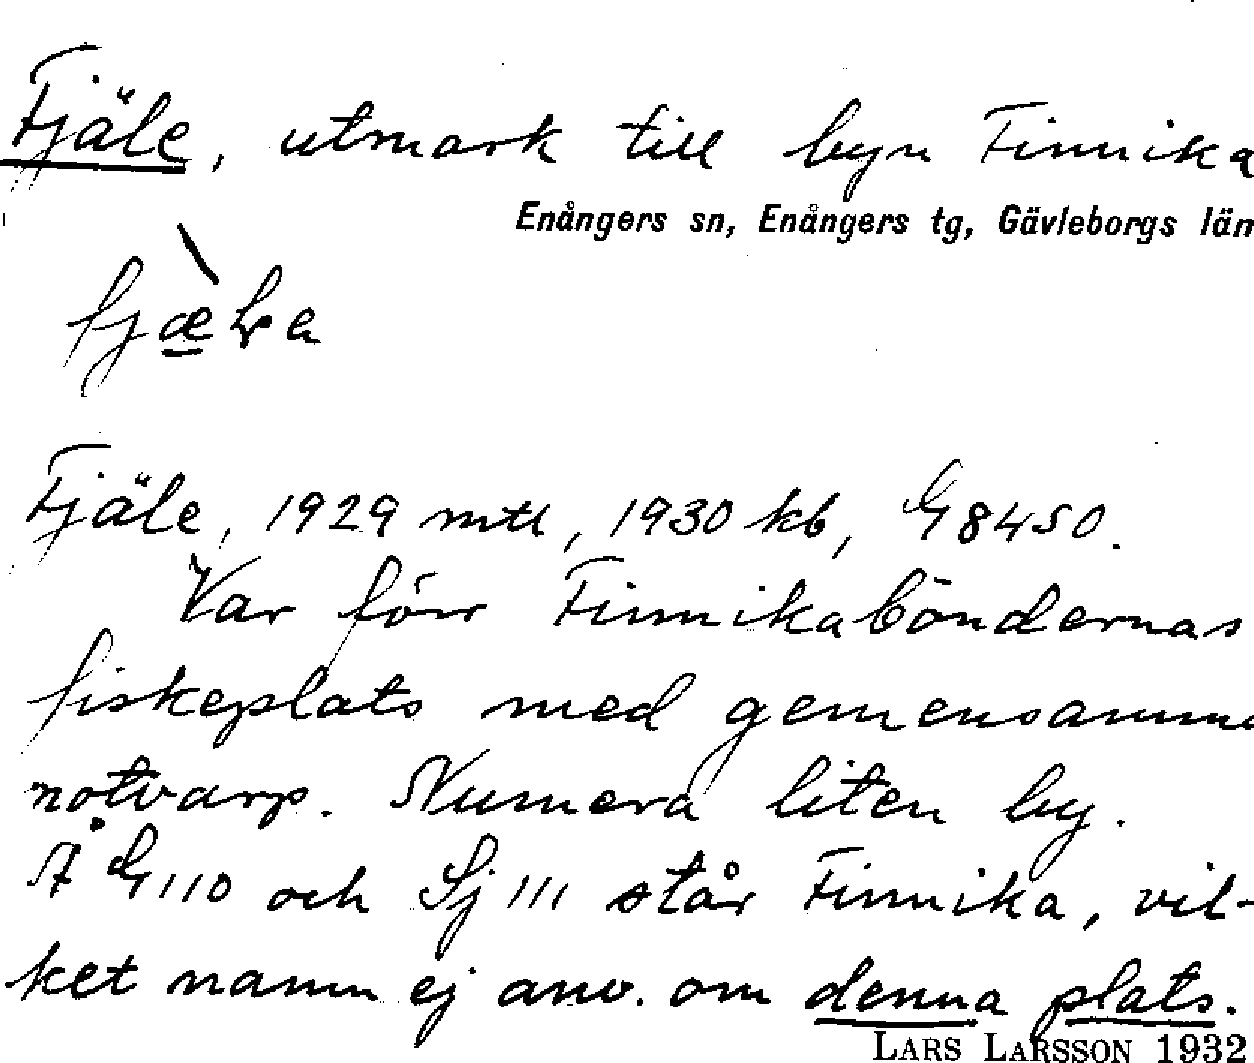 Fjäle, utmark till byn Finnika
Enångers sn, Enångers tg, Gävleborgs län
Fjäle, 1929 mtl, 1930 kb, G8450.
Var förr Finnikaböndernas
fiskeplats med gemensamma
notvarp. Numera liten by.
Å G110 och Sj111 står Finnika, vil-
ket namn ej anv. om denna plats.
LARS LARSSON 1932